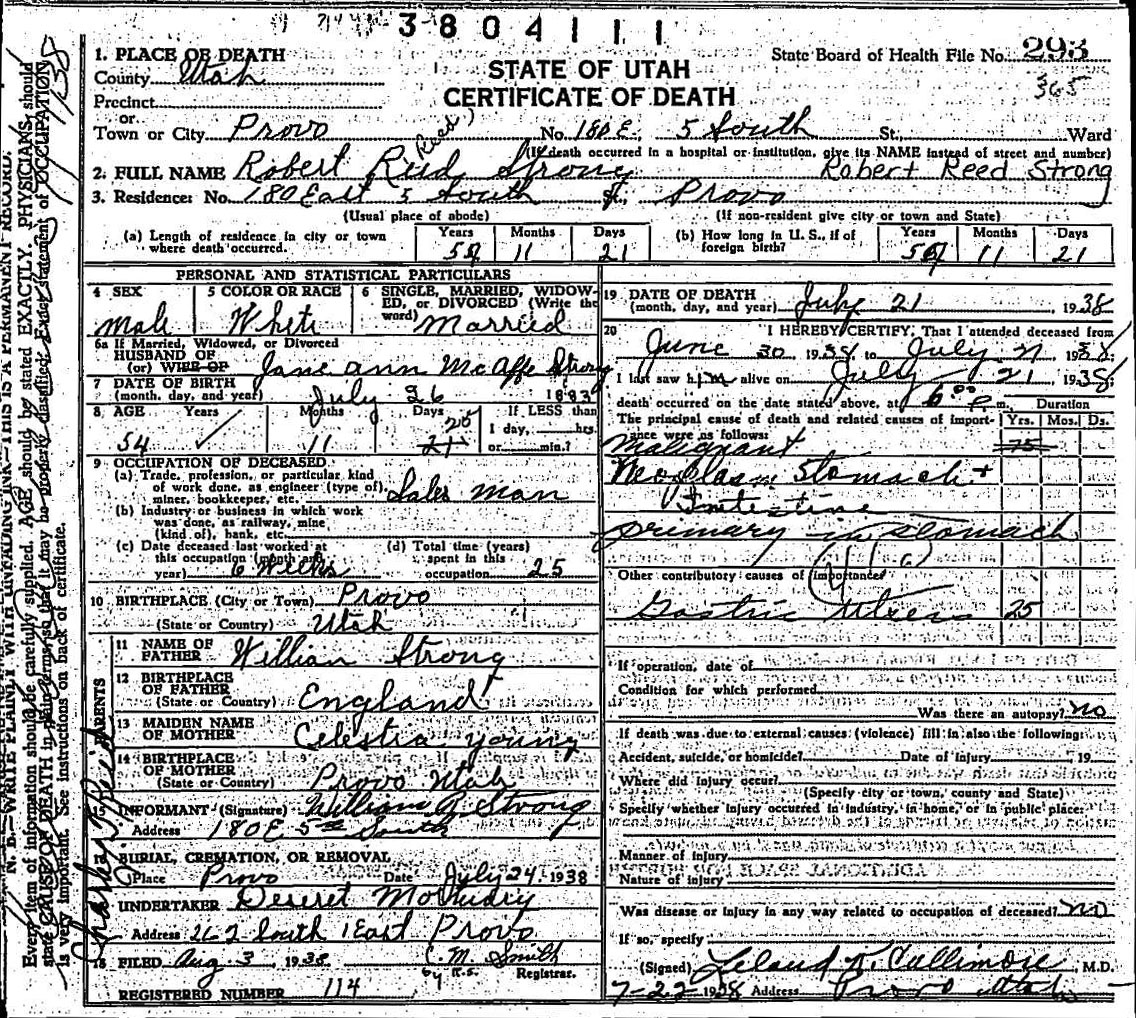 3804111
1. PLACE OF DEATH
County Utah
Precinct
or
Town or City Provo No. 180 E. 5 South St. Ward
State Board of Health File No. 293
365
STATE OF UTAH
CERTIFICATE OF DEATH
(If death occurred in a hospital or institution, give its NAME instead of street and number)
2. FULL NAME Robert Reid (Reed) Strong Robert Reed Strong
3. Residence: No. 180 East 5 South St. Provo
(Usual place of abode) (If non-resident give city or town and State)
(a) Length of residence in city or town where death occurred. Years Months 11 Days 21
(b) How long in U. S., if of foreign birth? Years Months 11 Days 21
PERSONAL AND STATISTICAL PARTICULARS
4 SEX Male
5 COLOR OR RACE White
6 SINGLE, MARRIED, WIDOWED, or DIVORCED (Write the word) Married
6a If Married, Widowed, or Divorced
HUSBAND OF
(or) WIFE OF Jane Ann McAffe Strong
7 DATE OF BIRTH
(month, day, and year) July 26 1883
8 AGE Years 54 Months 11 Days 21 25 If LESS than 1 day, hrs. or min.?
9 OCCUPATION OF DECEASED
(a) Trade, profession, or particular kind of work done, as engineer (type of) miner, bookkeeper, etc. Sales man
(b) Industry or business in which work was done, as railway, mine (kind of), bank, etc.
(c) Date deceased last worked at this occupation (month and year) 6 Weeks
(d) Total time (years) spent in this occupation 25
10 BIRTHPLACE (City or Town) Provo
(State or Country) Utah
PARENTS
11 NAME OF FATHER William Strong
12 BIRTHPLACE OF FATHER
(State or Country) England
13 MAIDEN NAME OF MOTHER Celestia Young
14 BIRTHPLACE OF MOTHER
(State or Country) Provo Utah
INFORMANT (Signature) William R. Strong
Address 180 E 5th South
BURIAL, CREMATION, OR REMOVAL
Place Provo Date July 24, 1938
UNDERTAKER Deseret Mortuary
Address 262 South 1 East Provo
18 FILED Aug. 3, 1938 C. M. Smith
by R.S. Registrar.
REGISTERED NUMBER 114
19 DATE OF DEATH
(month, day, and year) July 21 1938
20 I HEREBY CERTIFY, That I attended deceased from
June 30 1938 to July 21 1938;
I last saw him alive on July 21 1938;
death occurred on the date stated above, at 6 00 P. m. Duration
The principal cause of death and related causes of importance were as follows: Yrs. Mos. Ds.
Malignant
Neoplasm Stomach +
Intestine
primary in stomach
Other contributory causes of importance
Gastric Ulcers 25
If operation, date of
Condition for which performed
Was there an autopsy? no
If death was due to external causes (violence) fill in also the following:
Accident, suicide, or homicide? Date of injury 19
Where did injury occur?
(Specify city or town, county and State)
Specify whether injury occurred in industry, in home, or in public place.
Manner of injury
Nature of injury
Was disease or injury in any way related to occupation of deceased? no
If so, specify
(Signed) Leland K. Cullimore, M.D.
7-22-1938 Address Provo Utah
N. B.—WRITE PLAINLY WITH UNFADING INK—THIS IS A PERMANENT RECORD.
Every item of information should be carefully supplied. AGE should be stated EXACTLY. PHYSICIANS should
state CAUSE OF DEATH in plain terms, so that it may be properly classified. Exact statement of OCCUPATION
is very important. See instructions on back of certificate.